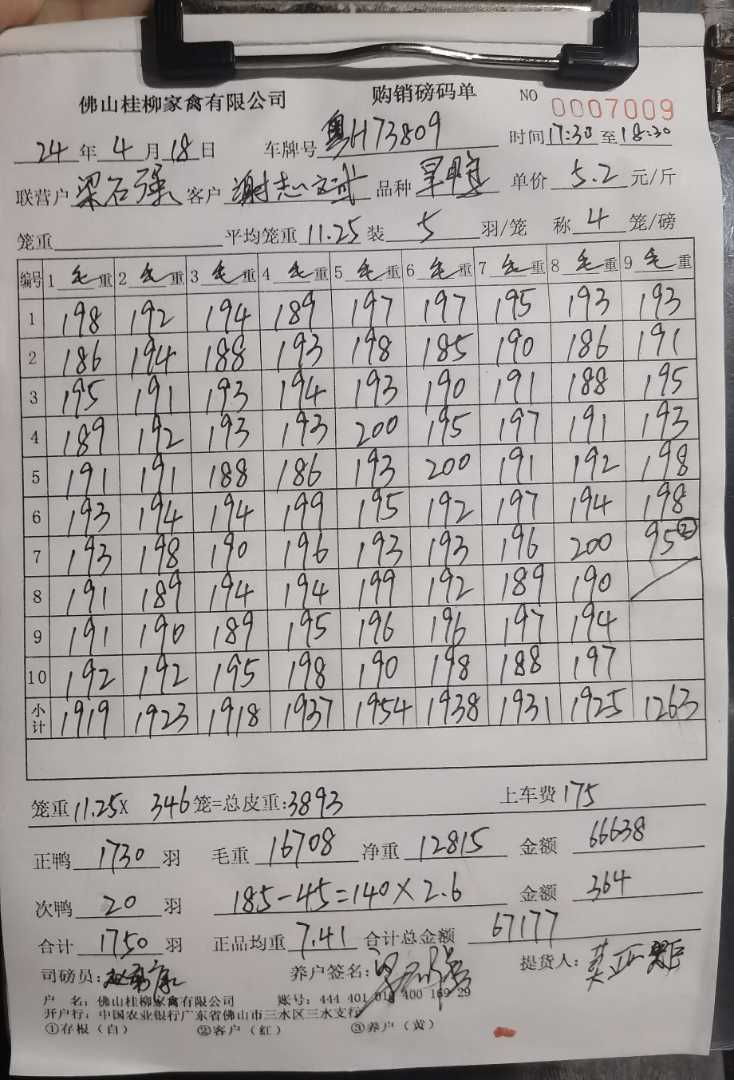 佛山桂柳家禽有限公司 购销磅码单 NO 0007009
24 年 4 月 18 日 车牌号 粤H73809 时间 17:30 至 18:30
联营户 梁石强 客户 谢志斌 品种 单价 5.2 元/斤
笼重 平均笼重 11.25 装 5 羽/笼 称 4 笼/磅
编号 1 毛 重 2 毛 重 3 毛 重 4 毛 重 5 毛 重 6 毛 重 7 毛 重 8 毛 重 9 毛 重
1 198 192 194 189 197 197 195 193 193
2 186 194 188 193 198 185 190 186 191
3 195 191 193 194 193 190 191 188 195
4 189 192 193 193 200 195 197 191 193
5 191 191 188 186 193 200 191 192 198
6 193 194 194 199 195 192 197 194 198
7 193 198 190 196 193 193 196 200 95②
8 191 189 194 194 199 192 189 190
9 191 190 189 195 196 196 197 194
10 192 192 195 198 190 198 188 197
小计 1919 1923 1918 1937 1954 1938 1931 1925 1263
笼重 11.25X 346 笼=总皮重:3893 上车费 175
正鸭 1730 羽 毛重 16708 净重 12815 金额 66638
次鸭 20 羽 185-45=140×2.6 金额 364
合计 1750 羽 正品均重 7.41 合计总金额 67177
司磅员: 养户签名: 提货人:
户 名: 佛山桂柳家禽有限公司 账号: 444 401 010 400 169 29
开户行: 中国农业银行广东省佛山市三水区三水支行
①存根(白) ②客户(红) ③养户(黄)